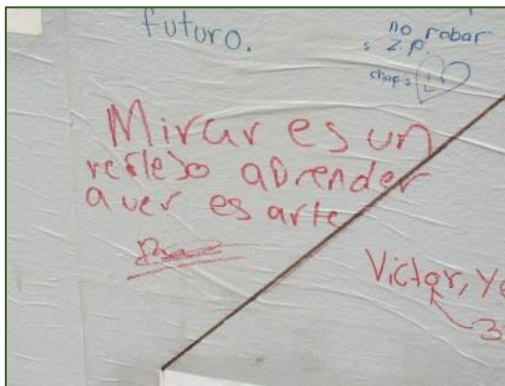 futuro.
no robar
s z.p.
chap s
Mirar es un
reflejo aprender
a ver es arte
Victor, Ya
3